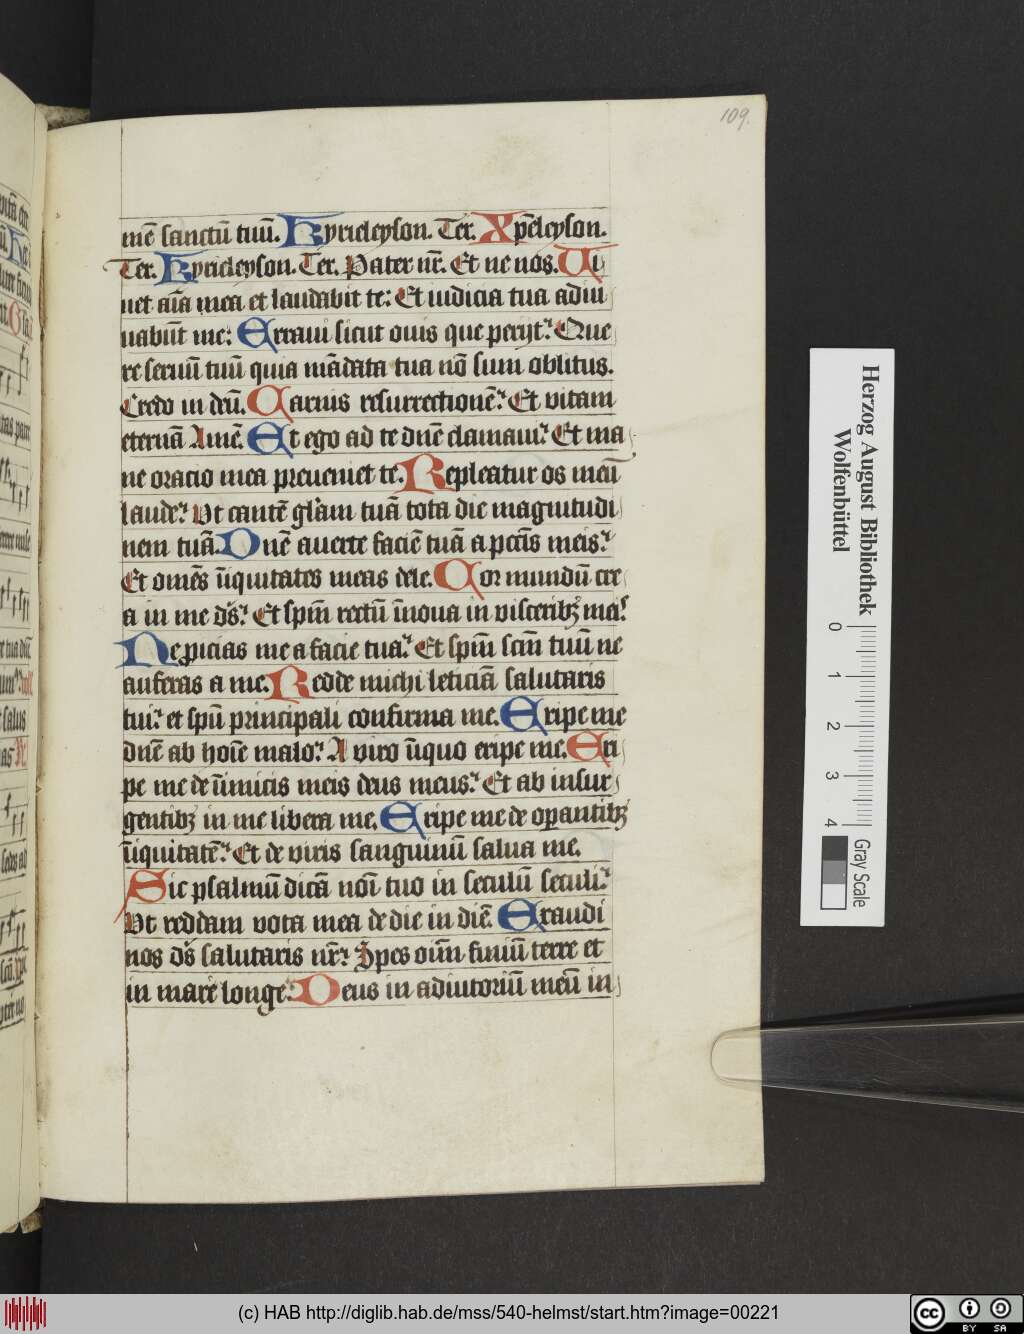 109.
mē sanctū tuū. Kyrieleyson. Ter. Xp̄eleyson.
Ter. Kyrieleyson. Ter. Pater nr̄. Et ne nos. Ui
uet aīa mea et laudabit te: Et iudicia tua adiu
uabūt me: Erraui sicut ouis que perijt: Que
re seruū tuū quia mādata tua nō sum oblitus.
Credo in deū. Carnis resurrectionē: Et vitam
eternā Amē. Et ego ad te dn̄e clamaui: Et ma
ne oracio mea preueniet te. Repleatur os meū
laude: Vt cantē gl̄am tuā tota die magnitudi
nem tuā. Dn̄e auerte faciē tuā a pctīs meis:
Et om̄es īiquitates meas dele. Cor mundū cre
a in me ds̄: Et spm̄ rectū īnoua in visceribꝫ meis
Ne ꝓicias me a facie tua: Et spm̄ scm̄ tuū ne
auferas a me. Redde michi leticiā salutaris
tui: et spū principali confirma me. Eripe me
dn̄e ab hoīe malo: A viro īiquo eripe me. Eri
pe me de īimicis meis deus meus: Et ab insur
gentibꝫ in me libera me. Eripe me de oꝑantibꝫ
īiquitatē: Et de viris sanguinū salua me.
Sic psalmū dicā noī tuo in seculū seculi:
Vt reddam vota mea de die in diē. Exaudi
nos ds̄ salutaris nr̄: Spes oīm finiū terre et
in mare longe: Deus in adiutoriū meū in
Herzog August Bibliothek
Wolfenbüttel
0 1 2 3 4
Gray Scale
(c) HAB http://diglib.hab.de/mss/540-helmst/start.htm?image=00221
cc BY SA